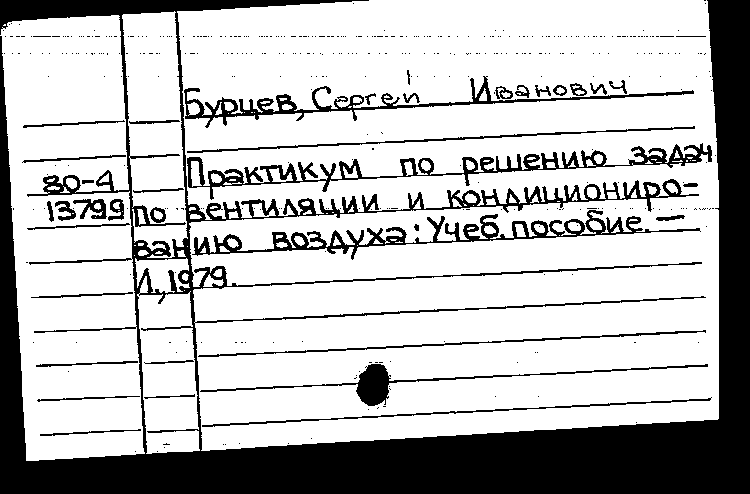 Бурцев, Сергей Иванович
80-4 Практикум по решению задач
13799 по вентиляции и кондициониро-
ванию воздуха: Учеб. пособие. —
Л., 1979.